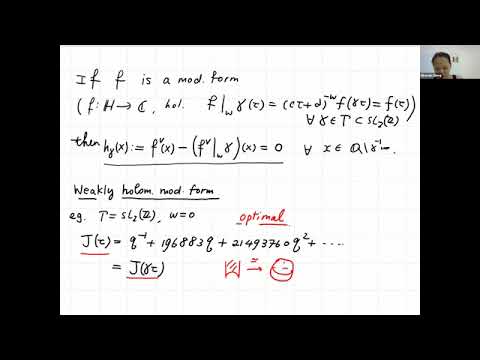 If f is a mod. form
( f: ℍ → ℂ, hol. f|_w γ(τ) = (cτ+d)^{-w} f(γτ) = f(τ) )
∀ γ ∈ Γ ⊂ SL₂(ℤ)
then h_γ(x) := f^v(x) - (f^v|_w γ)(x) = 0 ∀ x ∈ ℚ\γ^{-1}∞.
Weakly holom. mod. form
eg. Γ = SL₂(ℤ), w=0 optimal
J(τ) = q^{-1} + 196883q + 21493760q² + ....
= J(γτ)